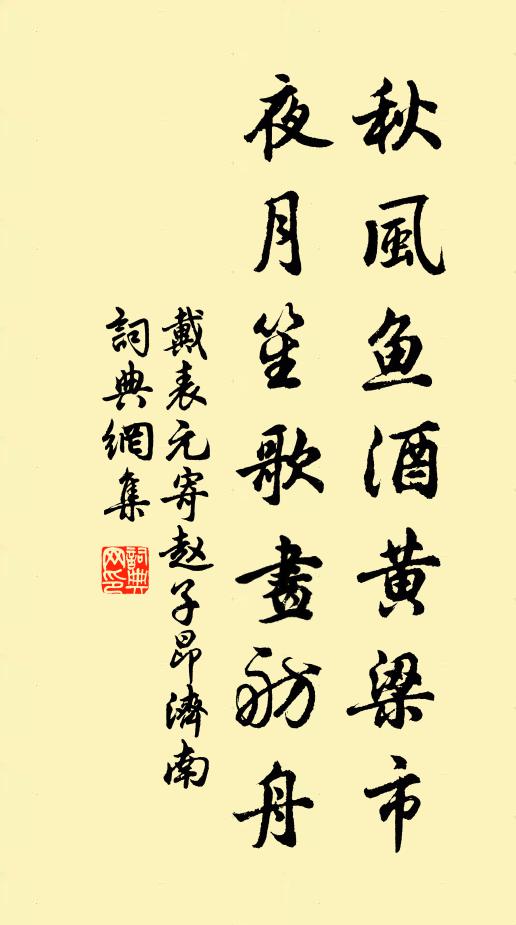 秋風鱼酒黄梁市
夜月笙歌畫舫舟
戴表元寄赵子昂濟南
詞典網集
詞典网印